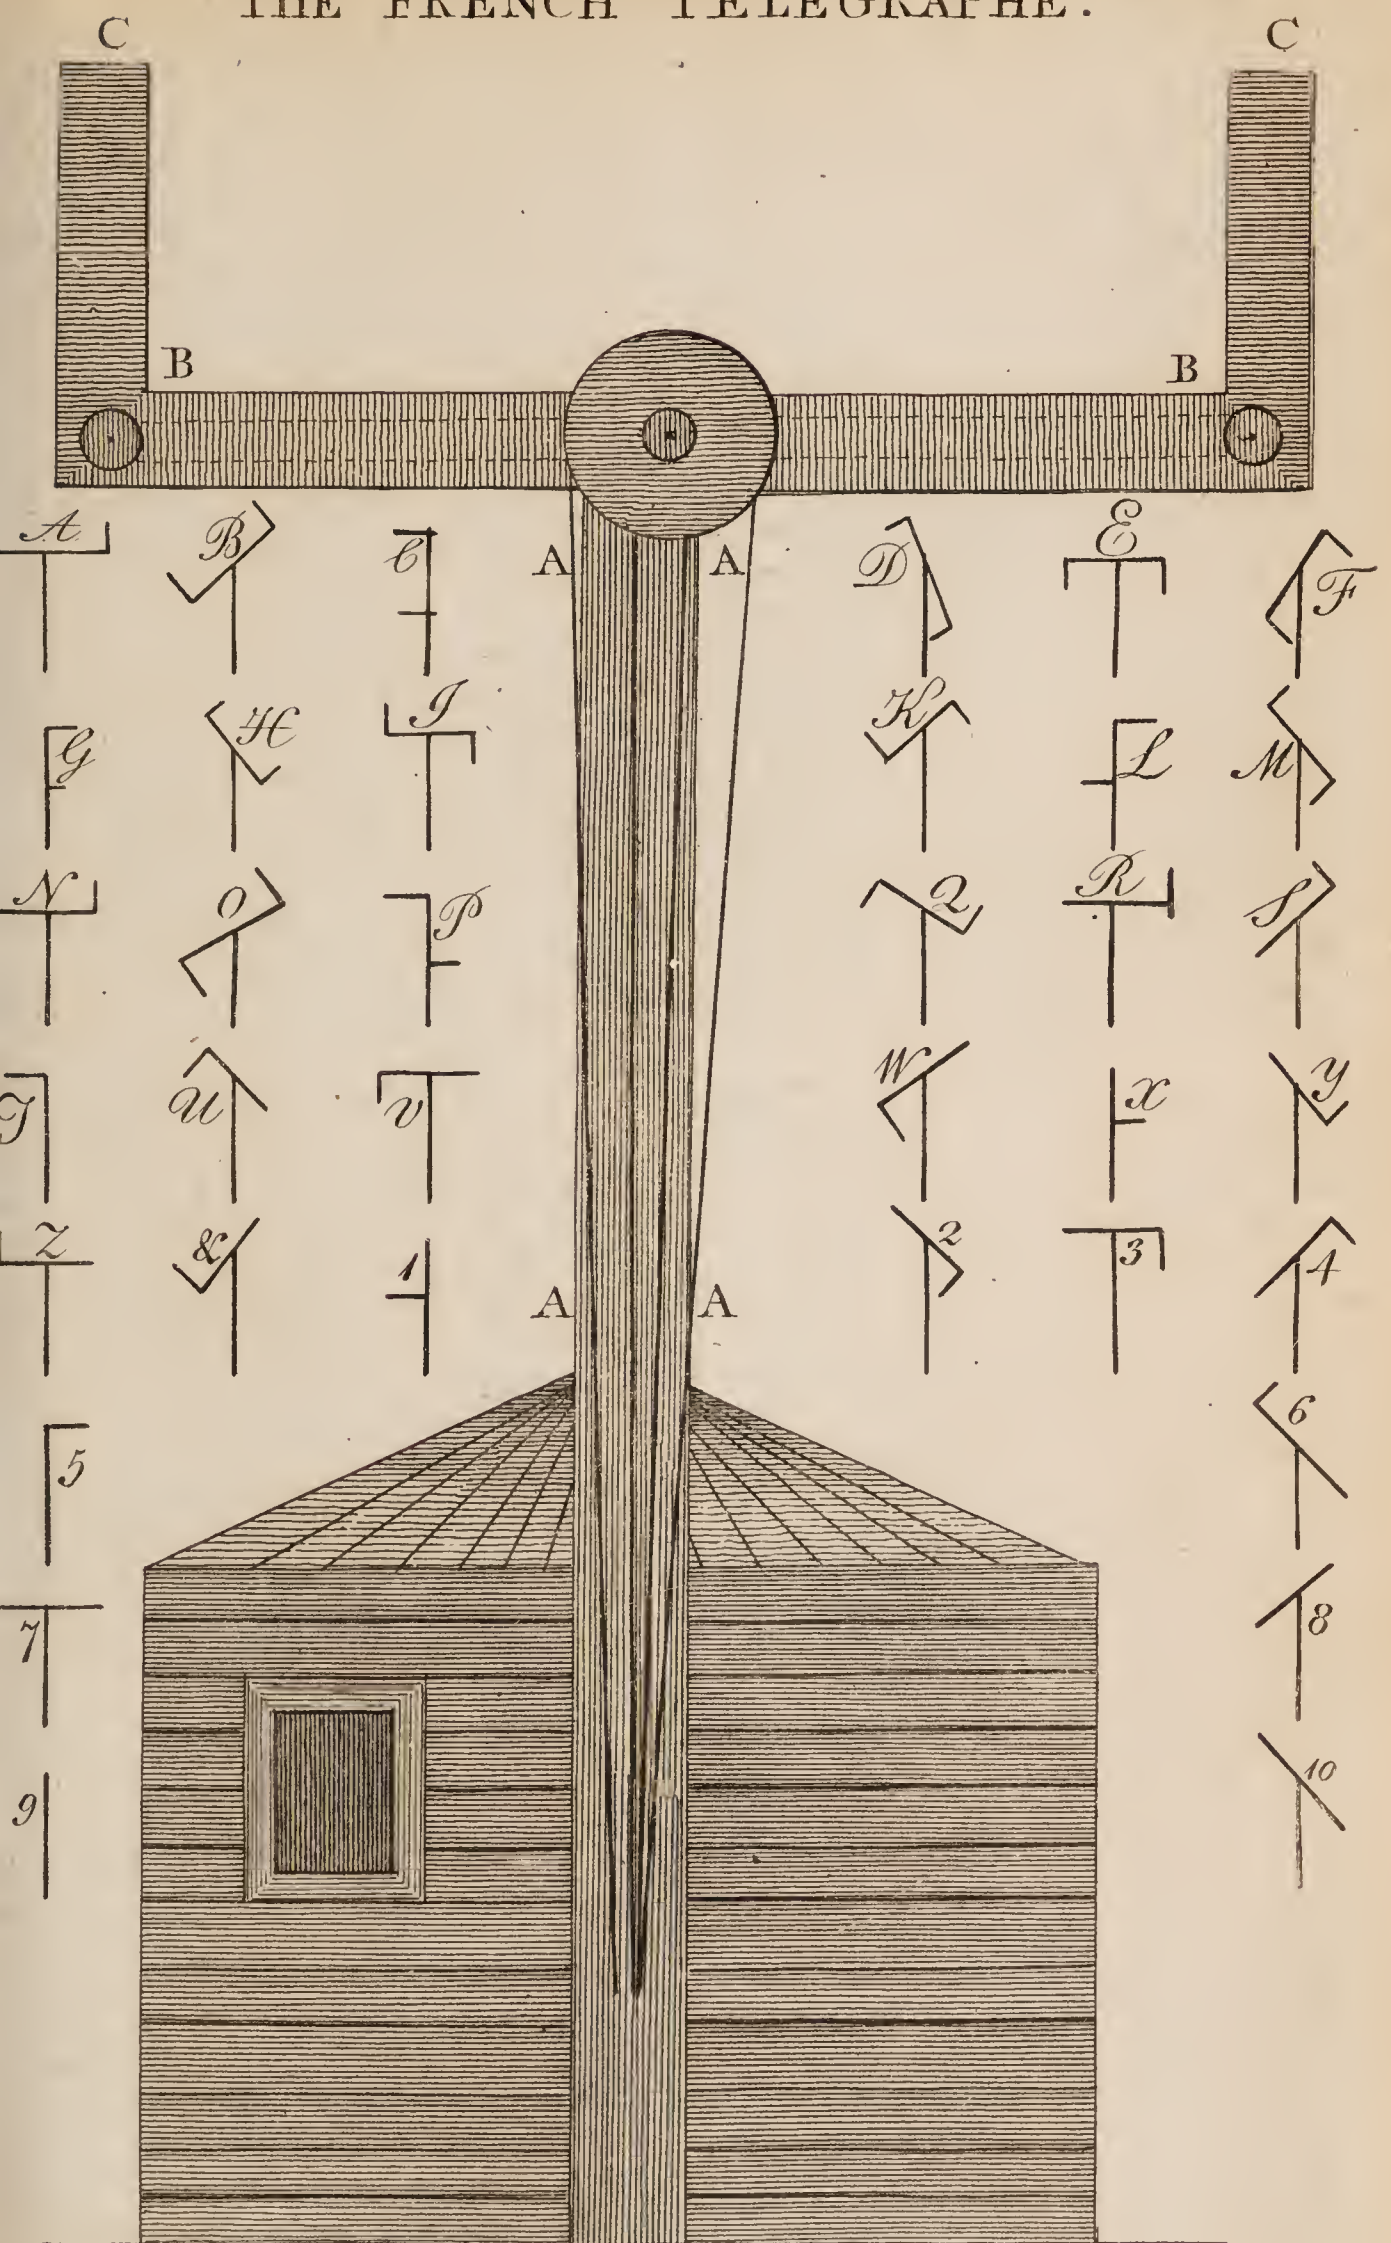 THE FRENCH TELEGRAPHE.
C C
B B
A B C A A D E F
G H I K L M
N O P Q R S
T U V W X Y
Z & 1 A A 2 3 4
5 6
7 8
9 10